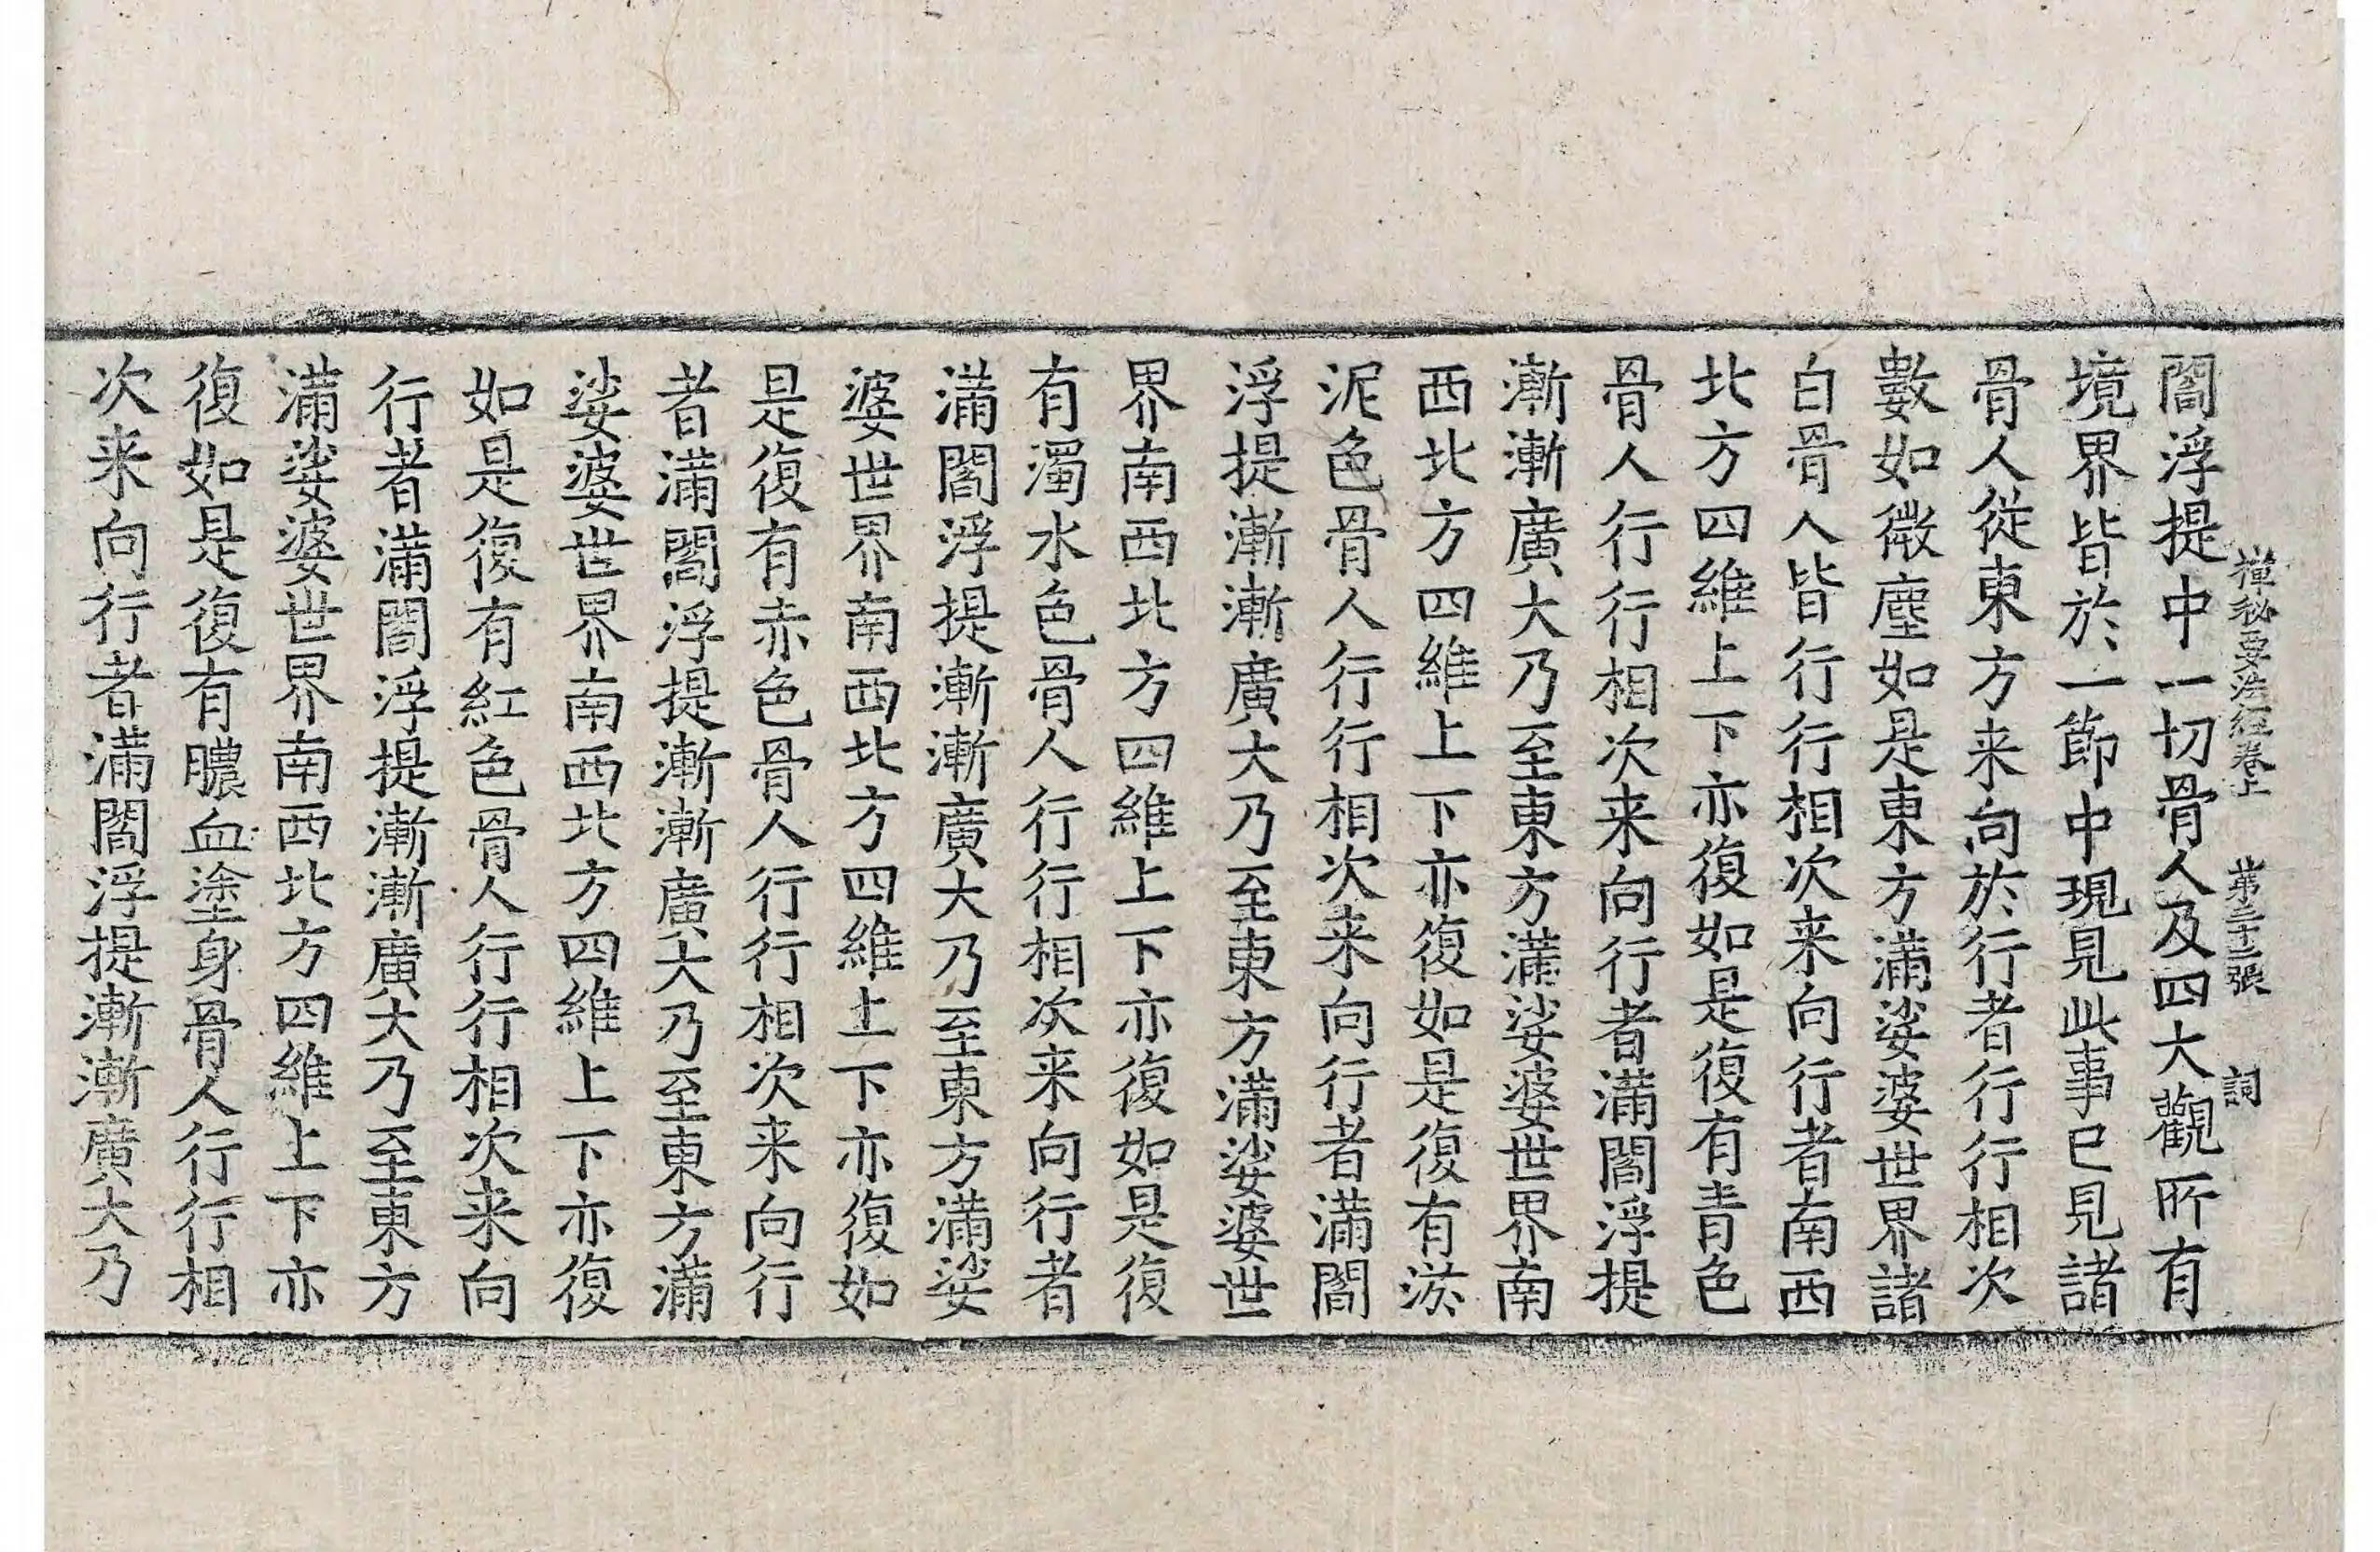 禪秘要法經卷上 第張 詞
閻浮提中一切骨人及四大觀所有
境界皆於一節中現見此事已見諸
骨人從東方来向於行者行行相次
數如微塵如是東方滿娑婆世界諸
白骨人皆行行相次来向行者南西
北方四維上下亦復如是復有青色
骨人行行相次来向行者滿閻浮提
漸漸廣大乃至東方滿娑婆世界南
西北方四維上下亦復如是復有淤
泥色骨人行行相次来向行者滿閻
浮提漸漸廣大乃至東方滿娑婆世
界南西北方四維上下亦復如是復
有濁水色骨人行行相次来向行者
滿閻浮提漸漸廣大乃至東方滿娑
婆世界南西北方四維上下亦復如
是復有赤色骨人行行相次来向行
者滿閻浮提漸漸廣大乃至東方滿
娑婆世界南西北方四維上下亦復
如是復有紅色骨人行行相次来向
行者滿閻浮提漸漸廣大乃至東方
滿娑婆世界南西北方四維上下亦
復如是復有膿血塗身骨人行行相
次来向行者滿閻浮提漸漸廣大乃